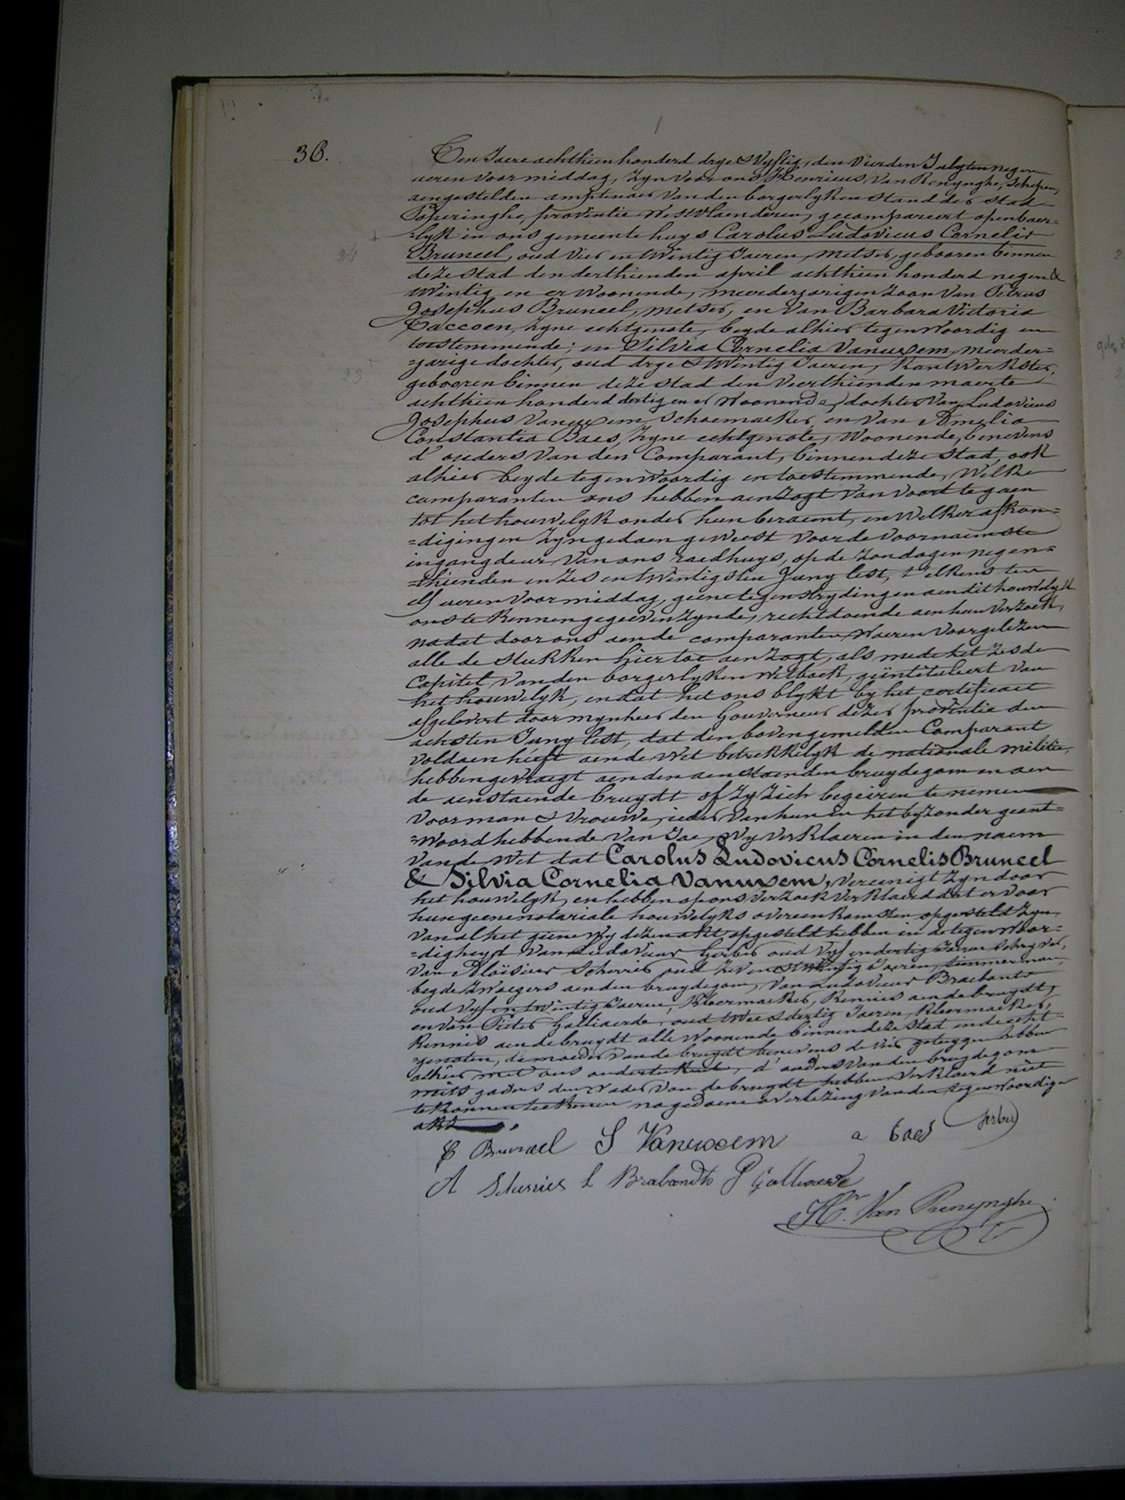 36.
Ten Jaere achthien honderd drye & Vyftig, den Vierden July ten negen
ueren voor middag, Zyn voor ons Henricus Van Renynghe, Schepen,
aengestelden amptenaer Van den borgerlyken Stand der Stad
Poperinghe, provintie Westvlaenderen, gecompareert openbaer-
-lyk in ons gemeente huys Carolus Ludovicus Cornelis
Bruneel, oud Vier en twintig Jaeren, Metser, gebooren binnen
deze Stad den derthienden april achthien honderd negen &
twintig en er Woonende, meerderjarigen Zoon Van Petrus
Josephus Bruneel, metser, en Van Barbara Victoria
Taccoen, Zyne echtgenote, beyde alhier tegenwoordig en
toestemmende; en Silvia Cornelia Vanuxem, meerder-
-jarige dochter, oud drye & twintig Jaeren, Kantwerkster,
gebooren binnen deze Stad den Veerthienden maerte
achthien honderd dertig en er Woonende, dochter Van Ludovicus
Josephus Vanuxem, Schoemaeker en Van Amelia
Constantia Baes, Zyne echtgenote, Woonende, benevens
d'ouders Van den Comparant, binnen deze Stad, ook
alhier beyde tegenwoordig en toestemmende, Welke
comparanten ons hebben aenzogt Van Voort te gaen
tot het houwelyk onder hun beraemt, en Welkers afkon-
-digingen Zyn gedaen geweest Voor de Voornaemste
ingangdeur Van ons raedhuys, op de Zondagen negen-
-thienden en Zes en twintigsten Juny lest, t'elkens ten
elf ueren Voor middag, geene tegenstrydingen aen dit houwelyk
ons te Kennen gegeeven Zynde, rechtdoende aen hun Verzoek,
na dat door ons aen de comparanten Waeren Voorgelezen
alle de Stukken hier toe aenzogt, als mede het Zesde
Capitel Van den borgerlyken Wetboek, geintituleert Van
het houwelyk, en dat het ons blykt by het certificaet
afgelevert door mynheer den Gouverneur dezer provintie den
achsten Juny lest, dat den bovengemelden Comparant
Voldaen heeft aen de Wet betrekkelyk de nationale militie,
hebben gevraegt aen den aenstaenden bruydegom en aen
de aenstaende bruydt of Zy Zich begeiren te nemen
Voor man & Vrouwe, ieder Van hun in het byzonder geant-
-Woord hebbende Van Jae, Wy Verklaeren in den naem
Van de Wet dat Carolus Ludovicus Cornelis Bruneel
& Silvia Cornelia Vanuxem, Vereenigt Zyn door
het houwelyk, en hebben op ons Verzoek Verklaerd dat er Voor
hun geene notariale houwelyks overeenkomsten opgesteld Zyn
Van al het geene Wy dezen akt opgesteld hebben in de tegenwoor-
-digheyd Van Ludovicus oud Vyf en dertig Jaeren
Van Aloisius Scherrier oud Zeven & twintig Jaeren, timmerman,
beyde Zwaegers aen den bruydegom, Van Ludovicus Brabandt
oud Vyf en twintig Jaeren, Kleermaeker, Kennis aen de bruydt,
en Van Pieter Galliaerde, oud twee & dertig Jaeren, Kleermaeker,
Kennis aen de bruydt alle Woonende binnen deze Stad en de echt-
-genoten, de moeder van de bruydt benevens de Vier getuygen hebben
alhier met ons onderteekent, d'ouders Van den bruydegom
mits gaders den Vader Van de bruydt hebben Verklaerd niet
te Konnen teekenen na gedaene overlezing Van den tegenwoordigen
akt.
C Bruneel S Vanuxem a Baes
A Scherrier L Brabandt P Galliaerde
H. Van Renynghe